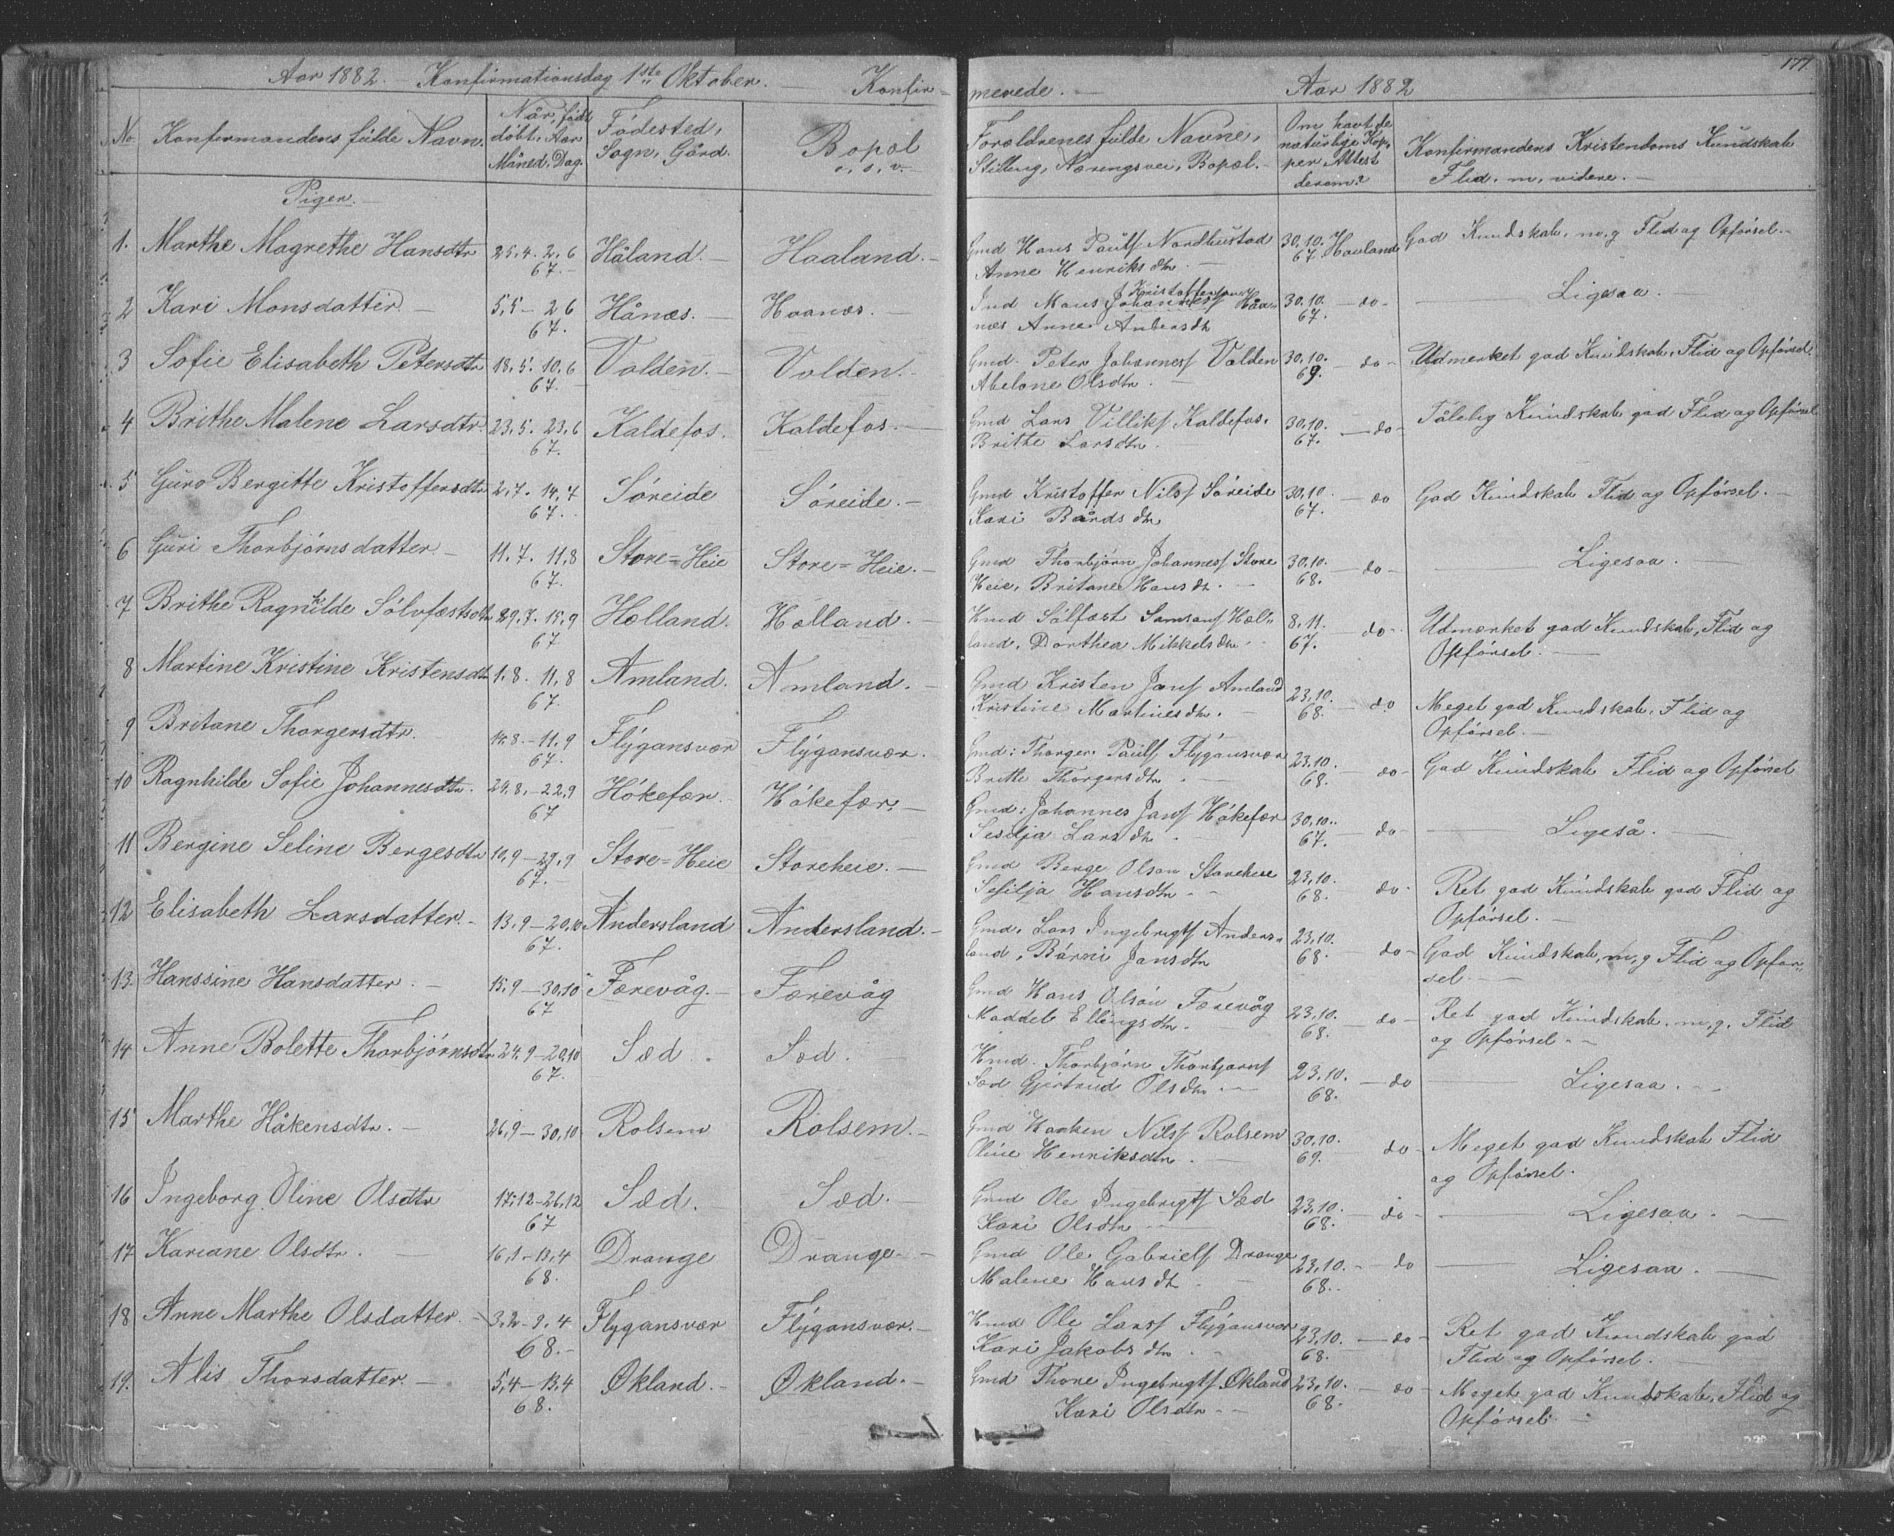 Aar 1882. — Konfirmationsdag 1ste Oktober. — Konfir-
merede. — Aar 1882
177
No
Konfirmandens fulde Navn.
Når født
døbt. Aar
Måned. Dag.
Fødested,
Sogn, Gård.
Bopæl
o. s. v. —
Forældrenes fulde Navne,
Stilling, Næringsvei, Bopæl. —
Om havt de
naturlige Kop-
per Attest
derom?
Konfirmandens Kristendoms Kundskab
Flid. m. videre. —
Piger. —
1. Marthe Magrethe Hansdtr 25.4. 2.6 Håland. — Haaland. — Gmd Hans Pauls Nordhustad 30.10. Haaland God Kundskab, m.g Flid og Opførsel. —
67. — Anne Henriksdtr — 67.
2 Kari Monsdatter — 5.5 — 2.6 Hånæs. — Haanæs. — Mons Kristoffersen 30.10. — do — — Ligesaa. —
67. næs Anne Andersdtr 67.
3 Sofie Elisabeth Petersdtr 18.5. 10.6 Valden. — Valden. — Gmd. Peter Johanness Valden 30.10. — do — Udmerket god Kundskab, Flid og Opførsel.
67. — Abelone Olsdtr. — 69.
4 Brithe Malene Larsdtr. 23.5. 23.6 Kaldefos. Kaldefos. — Gmd Lars Villiks Kaldefos. 30.10. — do — Tålelig Kundskab god Flid og Opførsel
67. Britte Larsdtr. 67.
5 Guro Bergitte Kristoffersdtr 2.7. 14.7 Søreide Søreide. — Gmd Kristoffer Nils Søreide 30.10. — do God Kundskab Flid og Opførsel. —
67. Kari Bårdsdtr 67.
6 Guri Thorbjørnsdatter. — 11.7. 11.8 Store=Heie Store=Heie. — Gmd Thorbjørn Johanness Store 30.10. — do — — Ligesaa. —
67. Heie, Britane Hansdtr. — 68.
7 Brithe Ragnhilde Sølvfæstsdtr 29.7. 15.9 Hælland. Hælland. — Sølfæst Samsons Hæl- 8.11. — do — Udmærket god Kundskab, Flid og
67 land, Dorthea Mikkelsdtr — 67. Opførsel. —
8 Martine Kristine Kristensdtr 1.8. 11.8 Amland. Amland. — Gmd Kristen Jans Amland 23.10. — do Meget god Kundskab. Flid og
67. Kristine Martinesdtr. — 68. Opførsel. —
9 Britane Thorgersdtr. 14.8 — 11.9 Flÿgansvær Flÿgansvær. Gmd: Thorger Pauls Flÿgansvær 23.10. — do — God Kundskab Flid og Opførsel
67. Brithe Thorgersdtr — 68.
10 Ragnhilde Sofie Johannesdtr. 29.8. — 22.9 Håkefær. Håkefær. — Gmd: Johannes Jans Håkefær 30.10. — do — — Ligeså. —
67 Sesilja Larsdtr — 67.
11 Bergine Seline Bergesdtr 10.9 — 29.9 Store=Heie Storeheie. — Gmd Berge Olson Storeheie 23.10. do — Ret god Kundskab god Flid og
67. Sesilja Hansdtr — 68. Opførsel. —
12 Elisabeth Larsdatter. — 13.9 — 20.10 Andersland Andersland. — Gmd. Lars Ingebrigts Anders- 23.10. — do — God Kundskab, m.g Flid og Opfør-
67. land, Børni Jansdtr 68. sel. —
13 Hanssine Hansdatter. — 15.9 — 30.10 Færevåg. — Færevåg Gmd Hans Olson Færevåg 23.10. — do — Ret god Kundskab, m.g. Flid
67 Maddel Ellingsdtr. 68. og Opførsel. —
14 Anne Bolette Thorbjørnsdtr 24.9 — 20.10 Sæd. Sæd. — Thorbjørn Thorbjørns 23.10. — do — Ligesaa. —
67. Sæd Gjertrud Olsdtr — 68.
15 Marthe Håkensdtr. — 26.9 — 30.10 Rolsem Rolsem. — Gmd Haaken Nils Rolsem 30.10. — do — Meget god Kundskab Flid
Oline Henriksdtr — 69. og Opførsel.
16 Ingeborg Oline Olsdtr 17.12 — 26.12 Sæd. Sæd. Gmd Ole Ingebrigts Sæd 23.10. — do — — Ligesaa. —
67 Kari Olsdtr — 68.
17 Kariane Olsdtr. — 16.1 — 13.4 Drange Drange. — Gmd Ole Gabriels Drange 23.10. — do — Ligesaa. —
68. Malene Hansdtr — 68.
18 Anne Marthe Olsdatter. — 3.2 — 9.4 Flÿgansvær Flÿgansvær. — Ole Lars Flÿgansvær 23.10. — do — Ret god Kundskab god
68. — Kari Jakobsdtr — 68. Flid og Opførsel. —
19. Alis Thorsdatter. — 5.4 — 13.4 Økland. — Økland. — Gmd Thore Ingebrigts Økland 23.10. — do — Meget god Kundskab, Flid og
68. Kari Olsdtr — 68. Opførsel. —